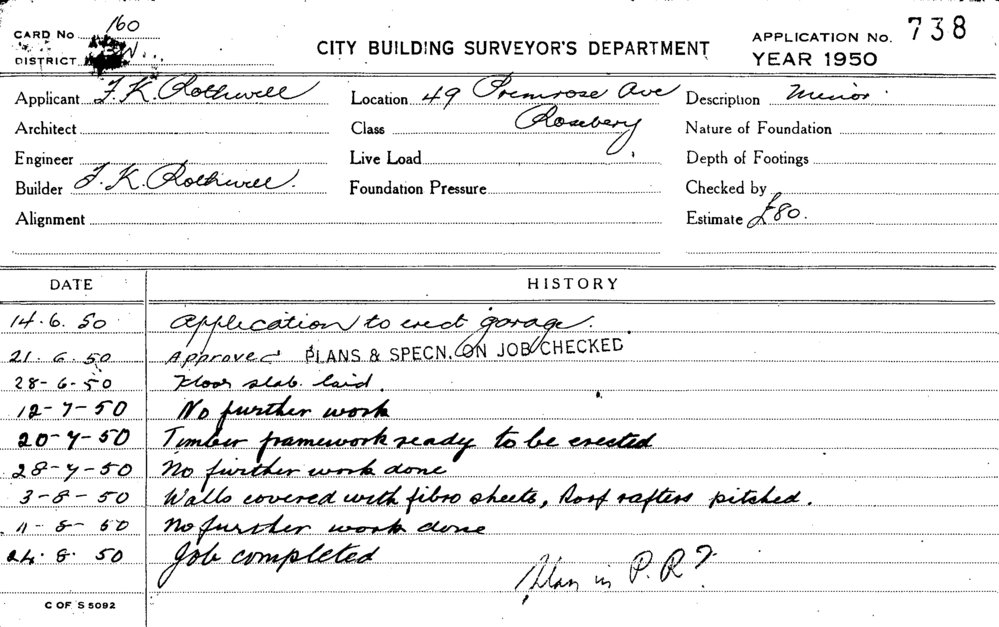 160
CARD No
DISTRICT
CITY BUILDING SURVEYOR'S DEPARTMENT
APPLICATION No. 738
YEAR 1950
Applicant F. K. Rothwell
Location 49 Primrose Ave
Rosebery
Description Minor
Architect
Class
Nature of Foundation
Engineer
Live Load
Depth of Footings
Builder F. K. Rothwell.
Foundation Pressure
Checked by
Alignment
Estimate £80.
DATE HISTORY
14.6.50 Application to erect garage.
21.6.50 Approved PLANS & SPECN. ON JOB CHECKED
28-6-50 Floor slab laid.
12-7-50 No further work
20-7-50 Timber framework ready to be erected
28-7-50 No further work done
3-8-50 Walls covered with fibro sheets, Roof rafters pitched.
11-8-50 No further work done
24.8.50 Job completed
Plan in P.R?
C OF S 5092